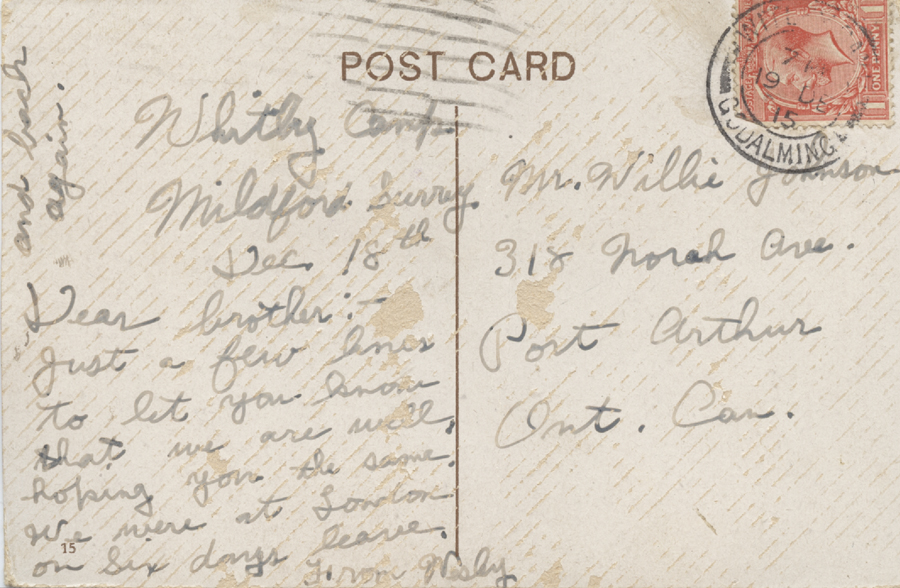 POST CARD
Whitby Camp.
Mildford Surrey.
Dec 18th
Dear brother:—
Just a few lines
to let you know
that we are well,
hoping you the same.
We were at London
on six days leave.
From Wesby
and back
again.
Mr. Willie Johnson
318 Norah Ave.
Port Arthur
Ont. Can.
GODALMING
19 DE
15
ONE PENNY
15